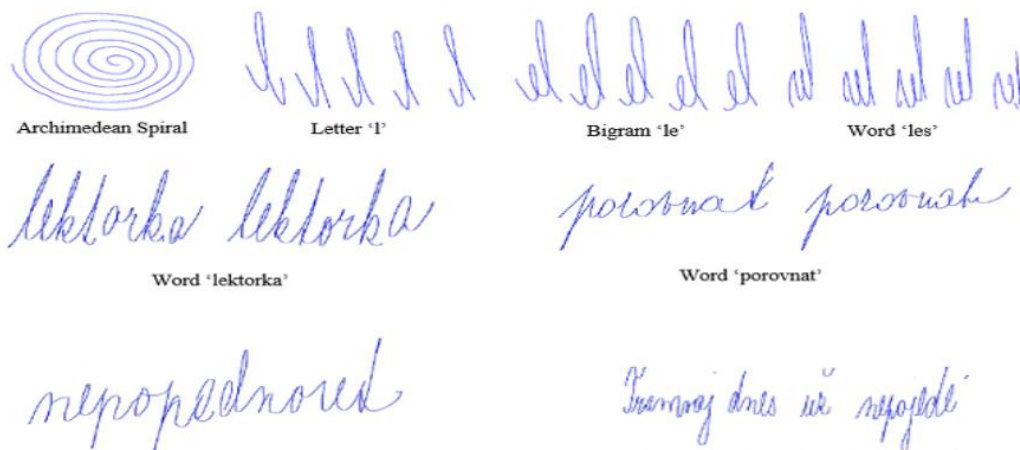 l l l l l le le le le le les les les les les
Archimedean Spiral Letter ‘l’ Bigram ‘le’ Word ‘les’
lektorka lektorka porovnat porovnat
Word ‘lektorka’ Word ‘porovnat’
nepopadnout Tramvaj dnes už nepojede